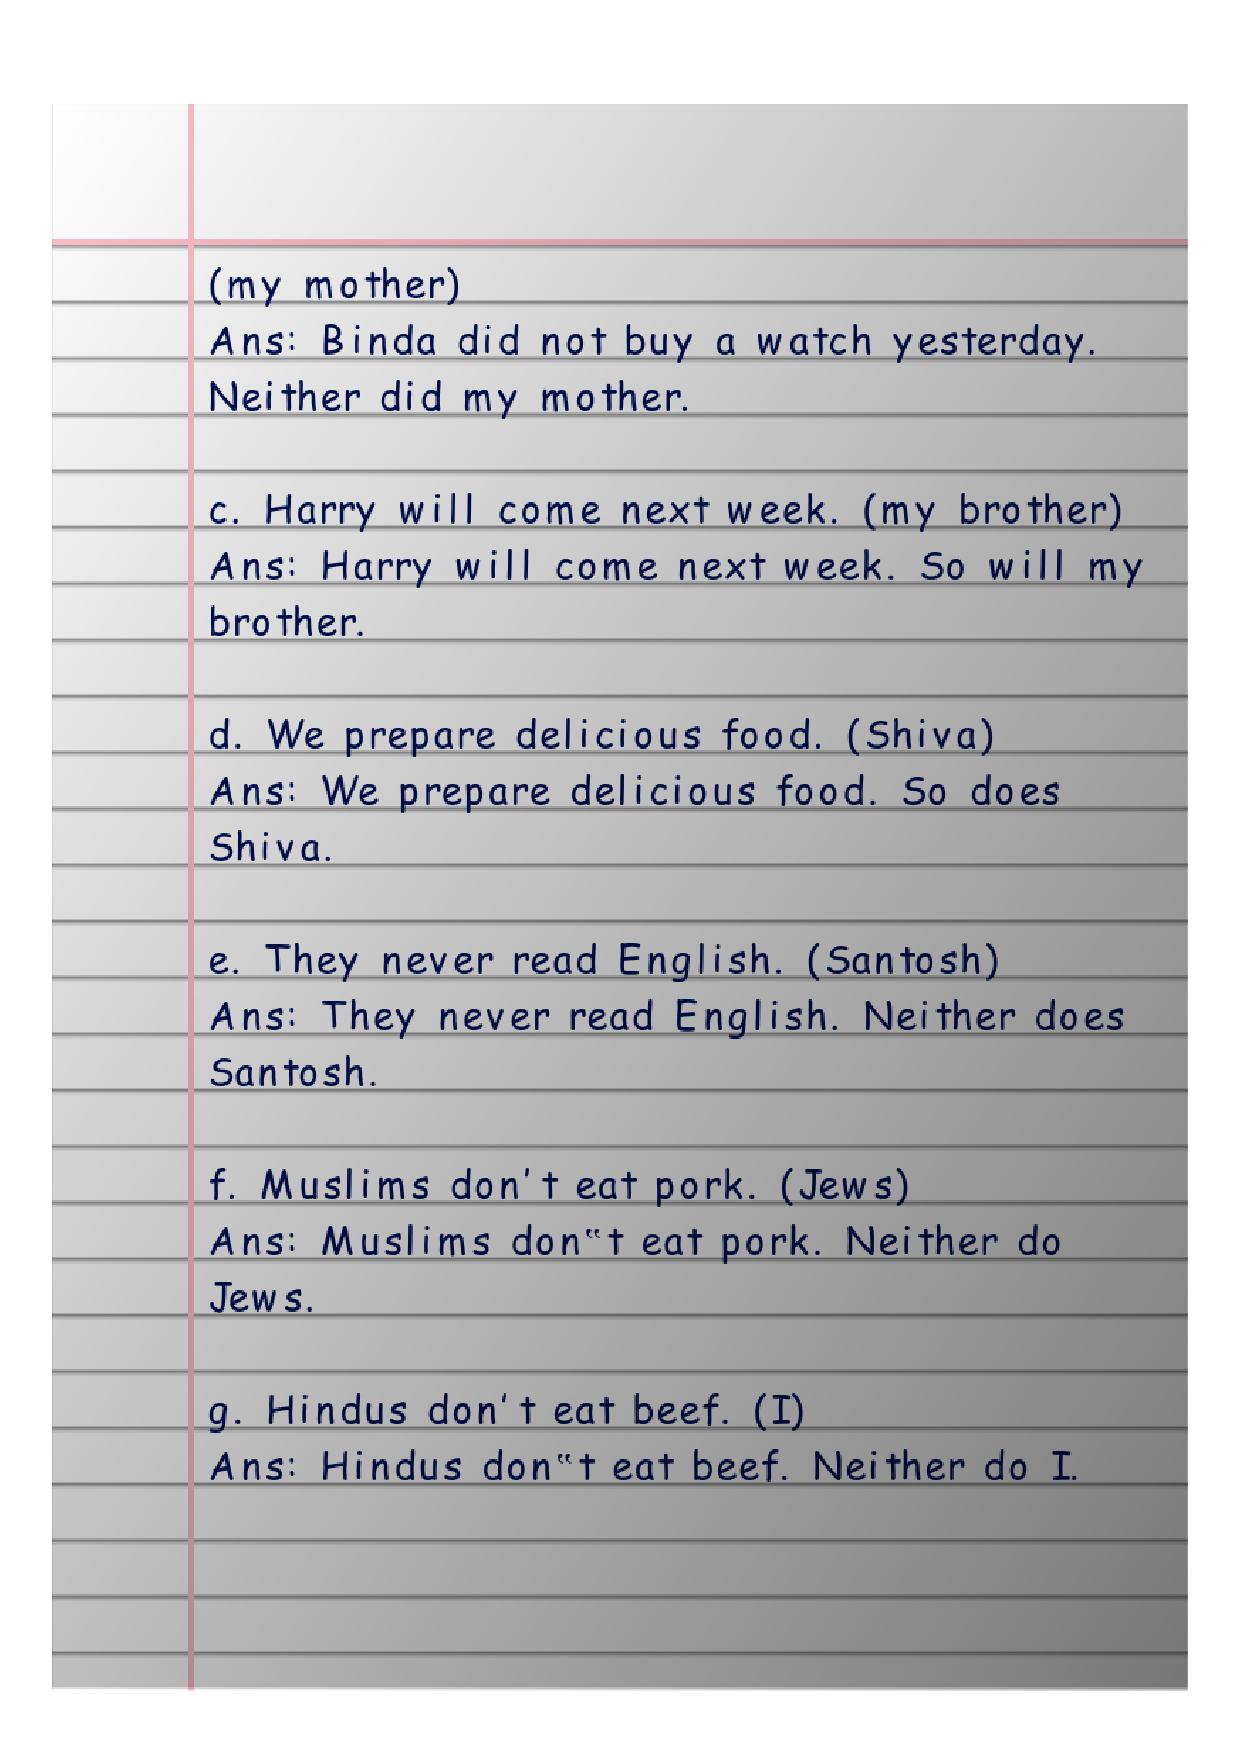 (my mother)
Ans: Binda did not buy a watch yesterday.
Neither did my mother.
c. Harry will come next week. (my brother)
Ans: Harry will come next week. So will my
brother.
d. We prepare delicious food. (Shiva)
Ans: We prepare delicious food. So does
Shiva.
e. They never read English. (Santosh)
Ans: They never read English. Neither does
Santosh.
f. Muslims don't eat pork. (Jews)
Ans: Muslims don‟t eat pork. Neither do
Jews.
g. Hindus don't eat beef. (I)
Ans: Hindus don‟t eat beef. Neither do I.